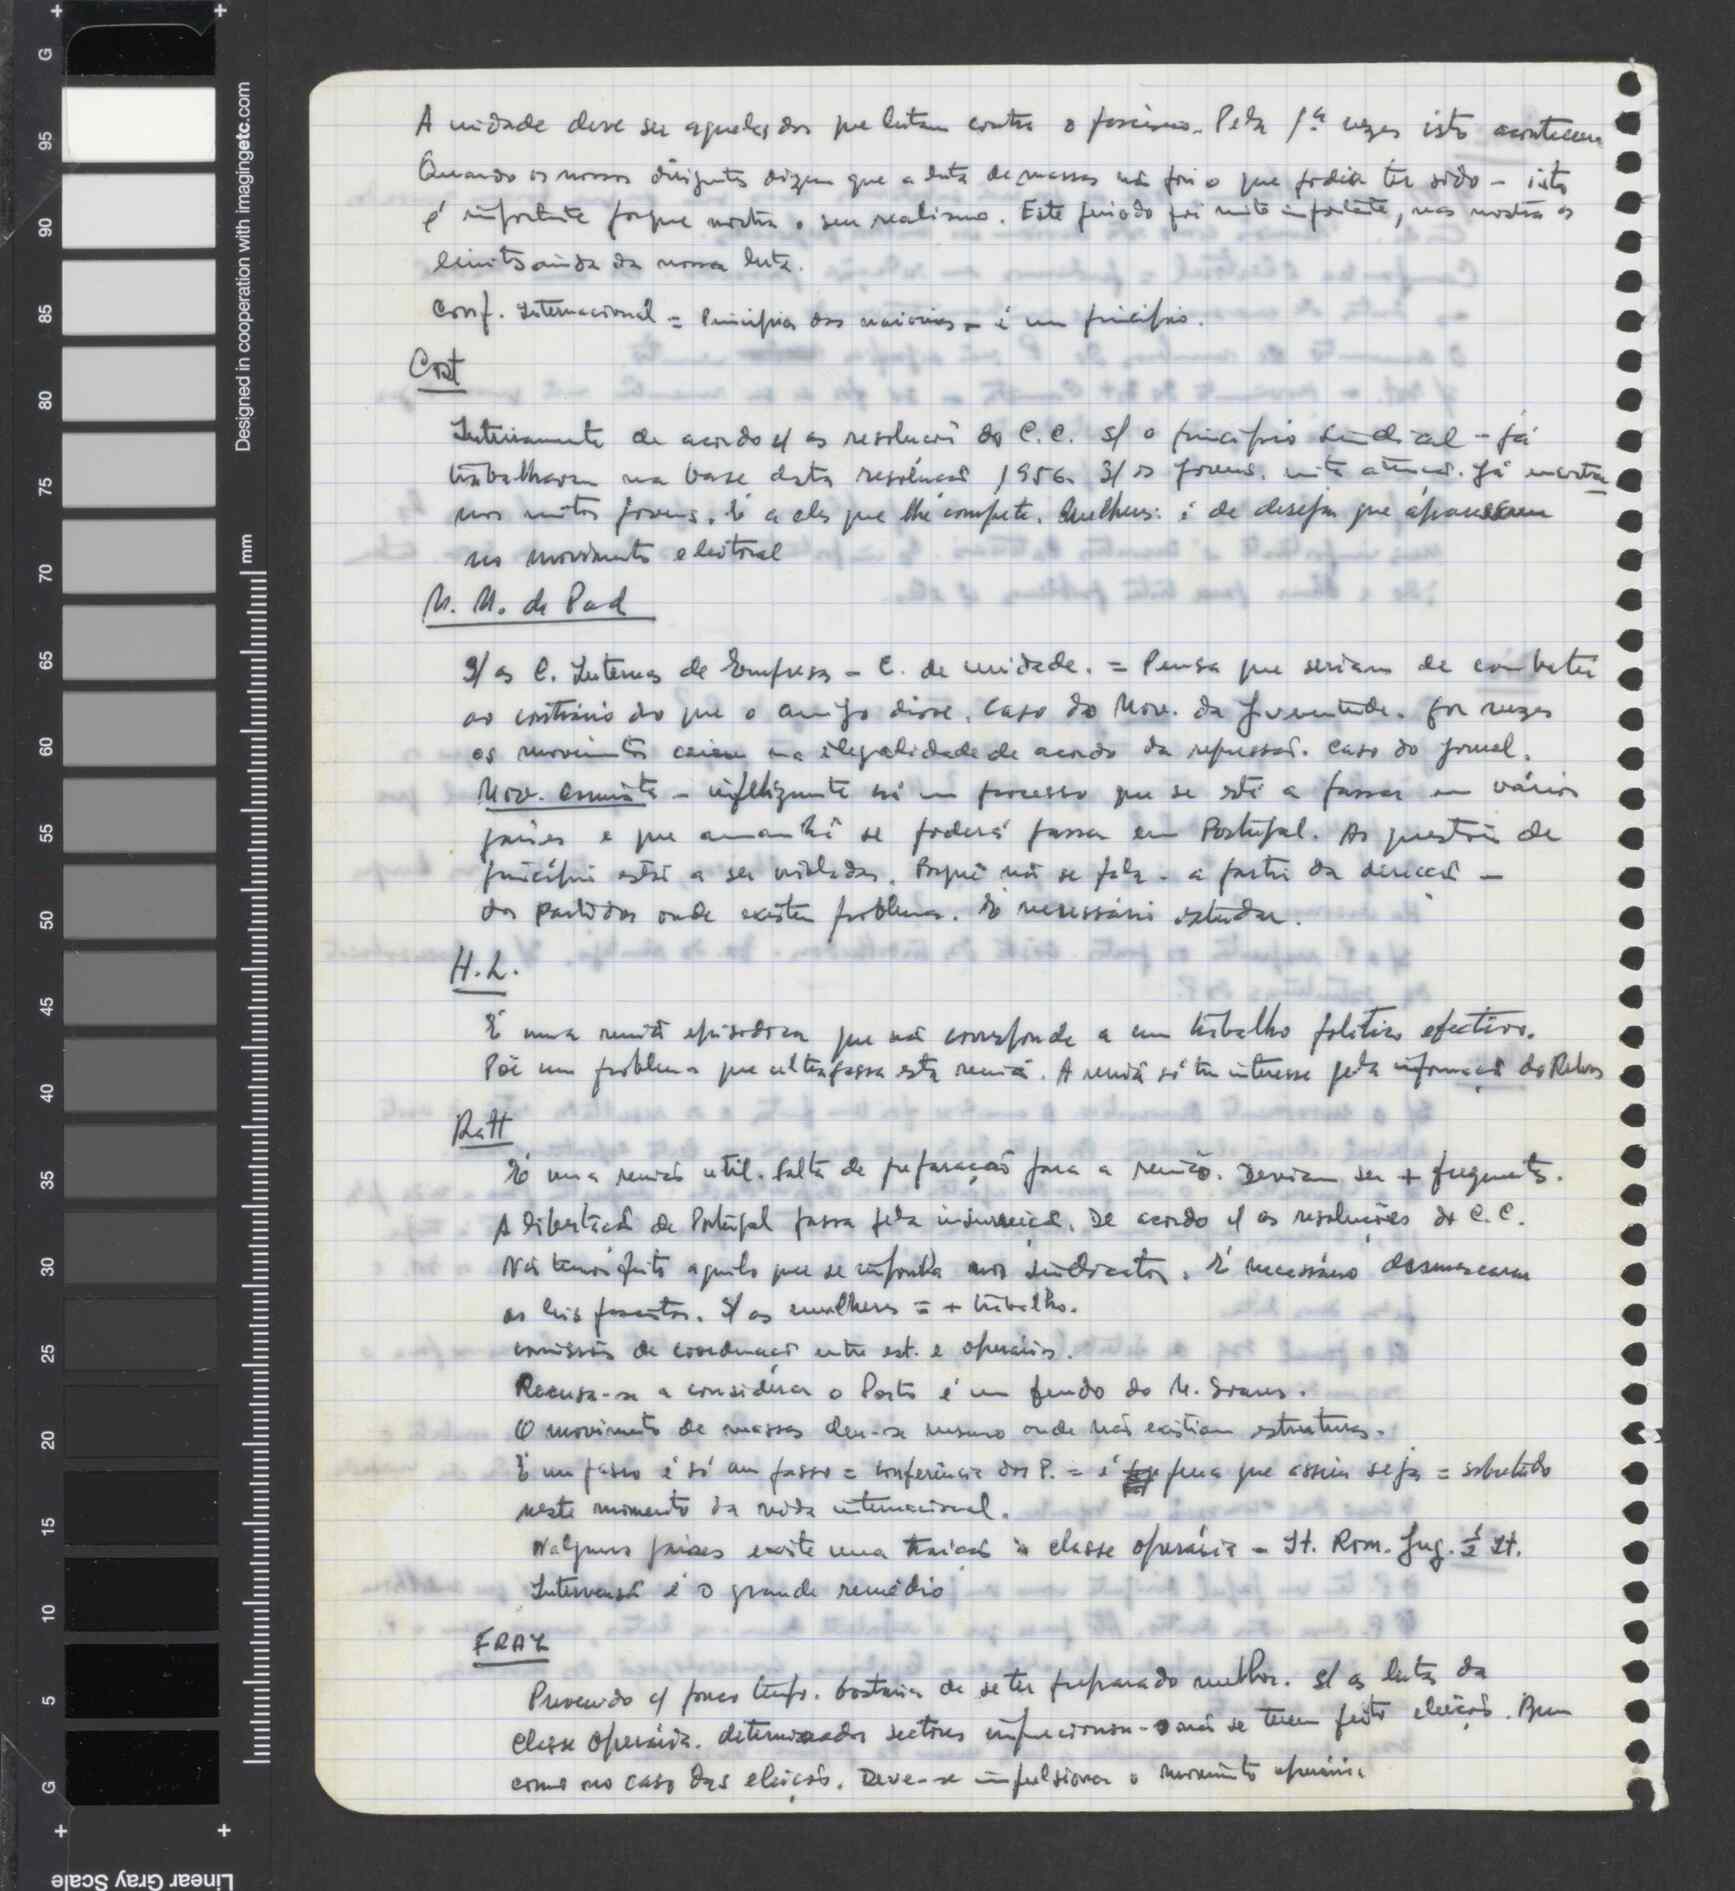 A unidade deve ser aqueles dos que lutam contra o fascismo. Pela 1.ª vezes isto aconteceu
Quando os nossos dirigentes dizem que a luta de massas não foi o que podia ter sido - isto
é importante porque mostra o seu realismo. Este período foi muito importante, mas mostra os
limites ainda da nossa luta.
Conf. Internacional = Princípios das maiorias - é um princípio.
Cost
Inteiramente de acordo c/ as resoluções do C.C. s/ o princípio sindical - já
trabalharam na base desta resolução 1956. S/ os jovens. muita atenção. Já
nos muitos jovens. É a eles que lhe compete. Mulheres: é de desejar que apareçam
no movimento eleitoral
M. M. de Pad
S/ as C. Internas de Empresa - C. de unidade. = Pensa que seriam de combater
ao contrário do que o amigo disse. Caso do Mov. da Juventude. Por vezes
os movimentos caiem na ilegalidade de acordo da repressão. Caso do jornal.
Mov. comunista - infelizmente há um processo que se está a passar em vários
países e que amanhã se poderá passar em Portugal. As questões de
princípio estão a ser violadas. Porquê não se fala - a partir da direcção -
dos partidos onde existem problemas. É necessário estudar.
H. L.
É uma reunião episódica que não corresponde a um trabalho político efectivo.
Põe um problema que ultrapassa esta reunião. A reunião só tem interesse pela informação do
Ratt
É uma reunião util. Falta de preparação para a reunião. Deviam ser + freguentes.
A libertação de Portugal passa pela insurreição. De acordo c/ as resoluções do C.C.
Nós temos feito aquilo que se impunha nos sindicatos. É necessário desmascarar
as leis fascistas. S/ as mulheres = + trabalho.
comissões de coordenação entre est. e operários.
Recusa-se a considerar o Porto é um feudo do M. Soares.
O movimento de massas deu-se mesmo onde não existiam estruturas.
É um passo é só um passo = conferência dos P. = é pena que assim seja = sobretudo
neste momento da vida internacional.
Nalguns países existe uma traição à classe operária - It. Rom. Jug. It.
Intervenção é o grande remédio
FRAZ
Prevenido c/ pouco tempo. Gostaria de se ter preparado melhor. S/ as lutas da
classe operária. determinados sectores impressionou-o não se terem feito eleições. Bem
como no caso das eleições. Deve-se impulsionar o movimento operário